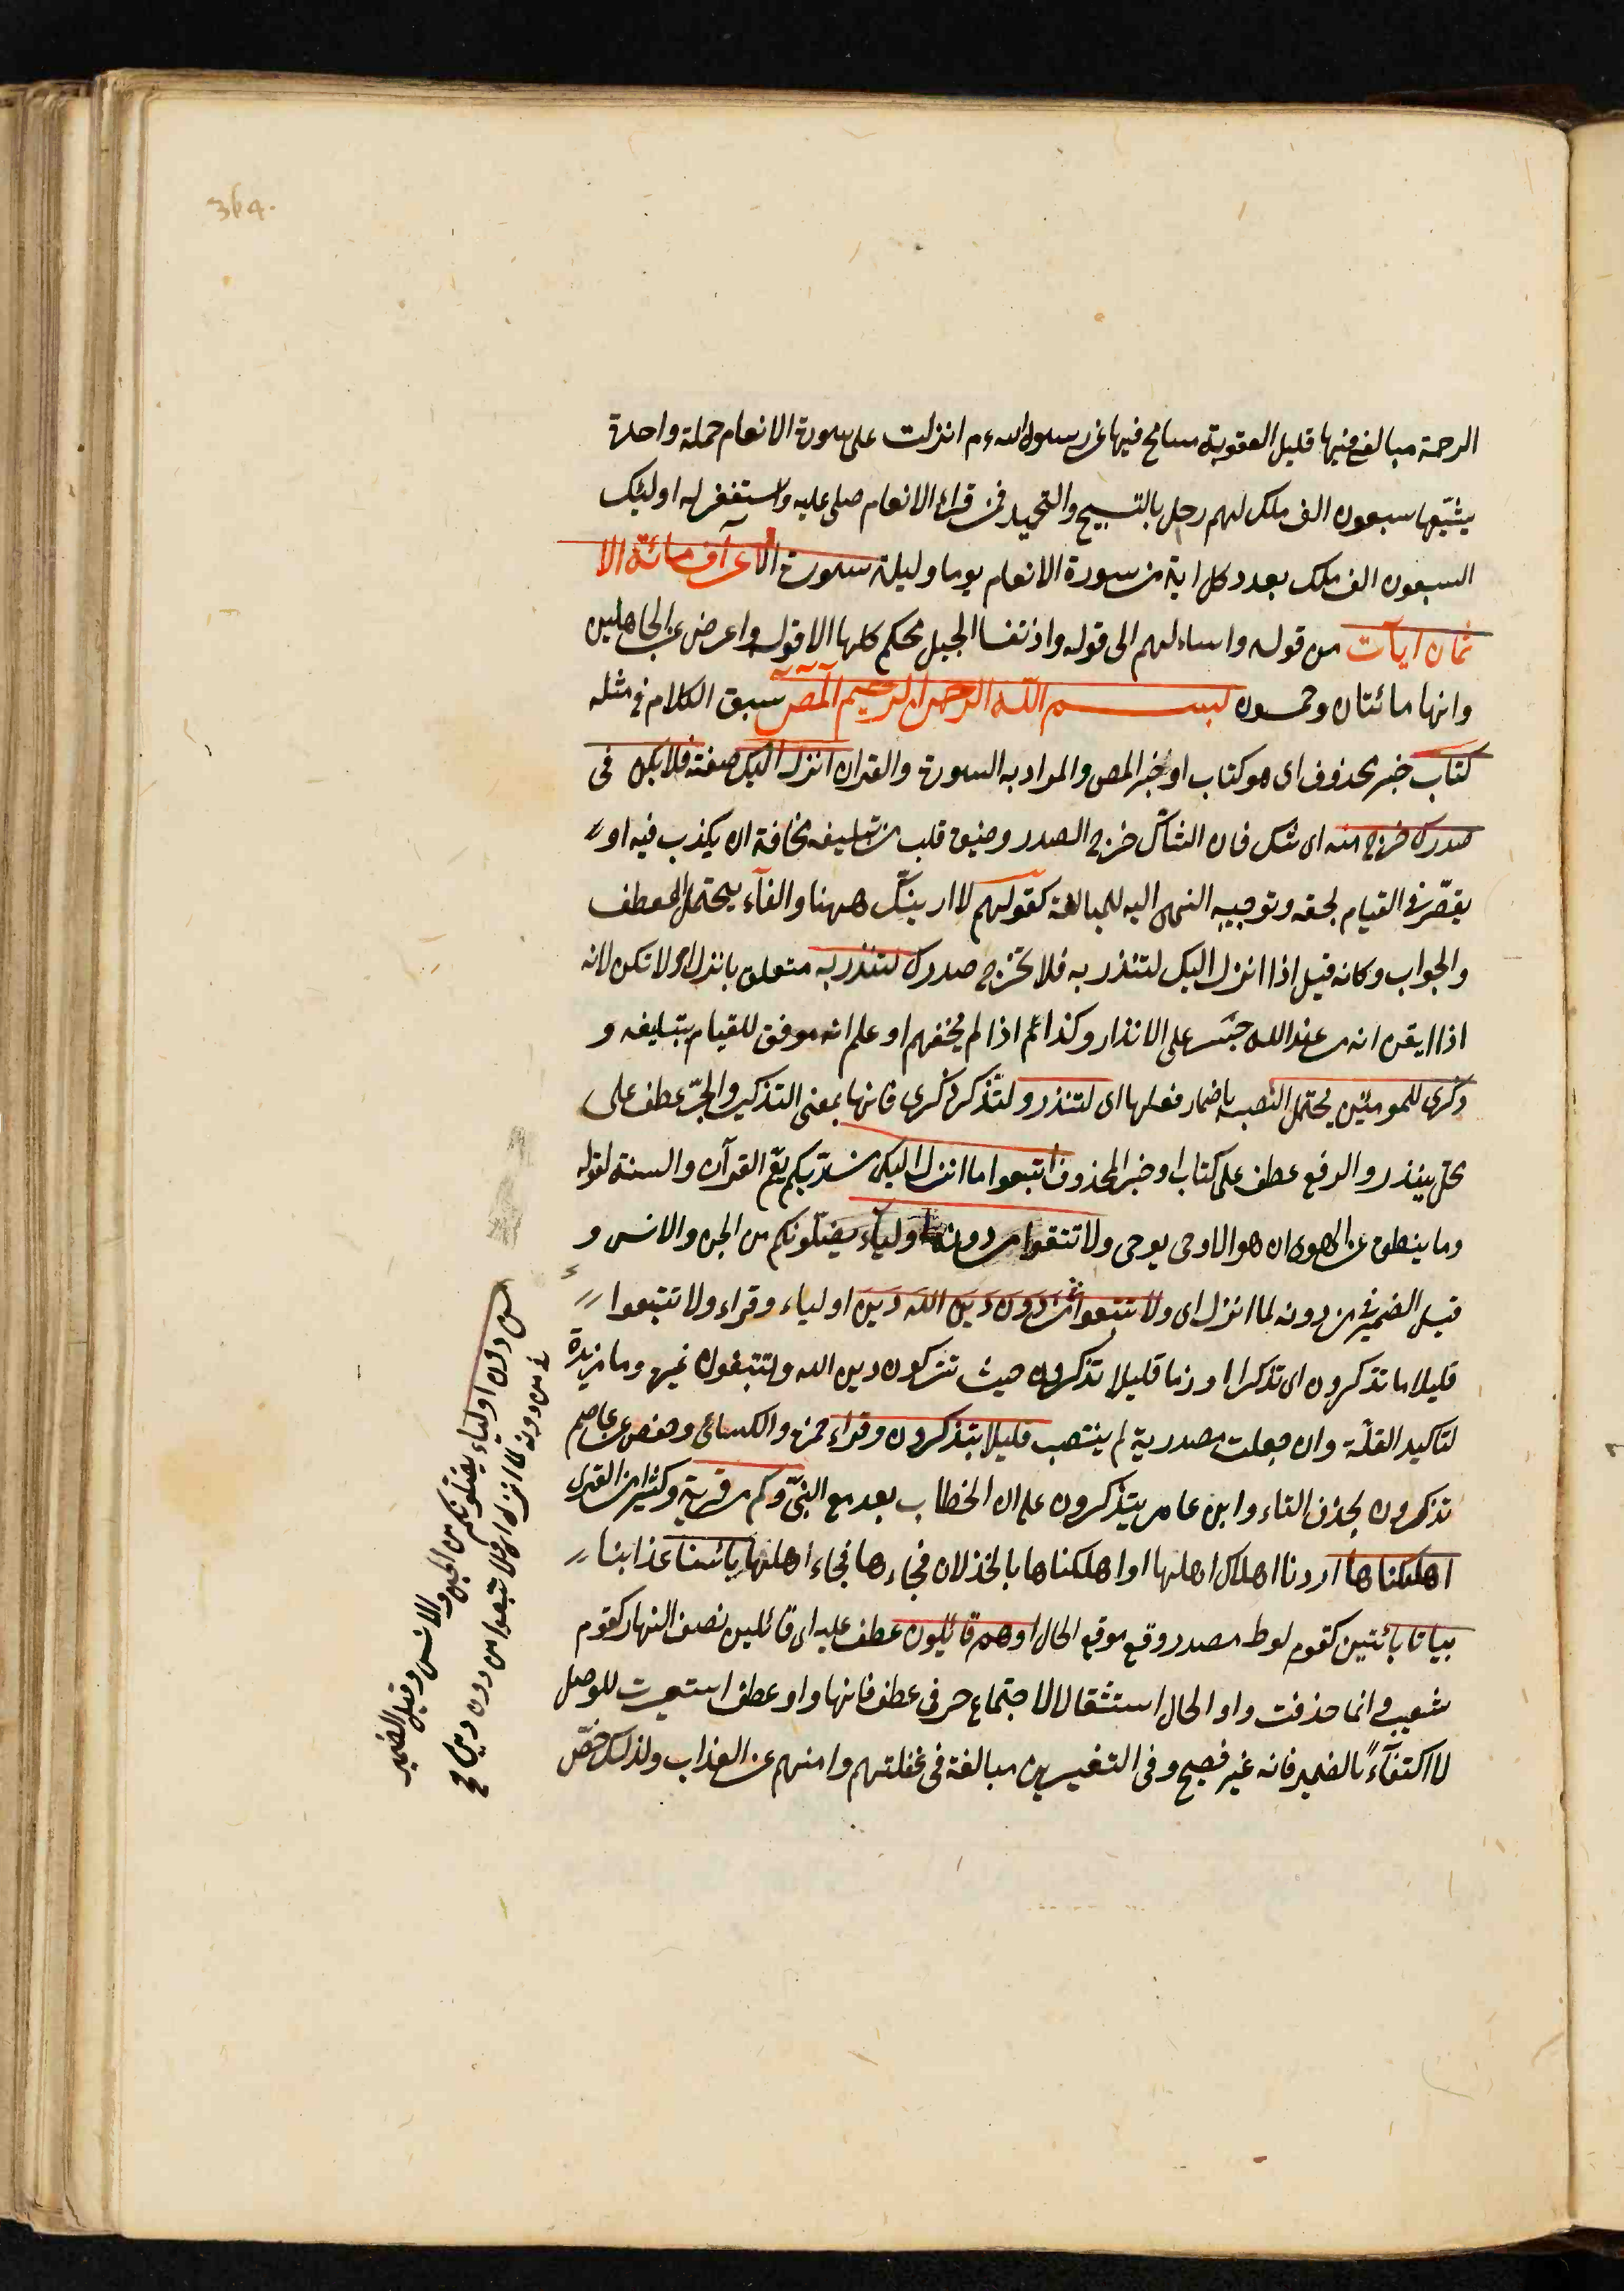 364.
الرحمة مبالغ فيها قليل العقوبة مسامح فيها عن رسول الله ءم انزلت على سورة الانعام جملة واحدة
يشيّعها سبعون الف ملك لهم زجل بالتسبيح والتحميد فمن قراء الانعام صلى عليه واستغفر له اولئك
السبعون الف ملك بعدد كل اية من سورة الانعام يوما وليلة سورة الاعراف مائة الا
ثمان ايات من قوله واساءلهم الى قوله واذ نتقنا الجبل محكم كلها الا قوله واعرض عن الجاهلين
وانها مائتان وخمسون بسم الله الرحمن الرحيم المص سبق الكلام في مثله
كتاب خبر محذوف اى هو كتاب او خبر المص والمراد به السورة والقران انزل اليك صفته فلا يكن فى
صدرك حرج منه اى شك فان الشاك حرج الصدر وضيق قلب من تبليغه مخافة ان يكذب فيه او
يقصّر في القيام بحقه وتوجيه النهى اليه للمبالغة كقولهم لا ارينّك ههنا والفآء يحتمل العطف
والجواب وكانه قيل اذا انزل اليك لتنذر به فلا يحرج صدرك لتنذر به متعلق بانزل او لا تكن لانه
اذا ايقن انه من عند الله جسر على الانذار وكذا ثم اذا لم يخفهم او علم انه موفق للقيام بتبليغه و
ذكرى للمومنين يحتمل النصب باضمار فعلها اى لتنذر ولتذكر ذكرى فانها بمعنى التذكير والجرّ عطف على
محل ينذر والرفع عطف على كتاب او خبر المحذوف اتبعوا ما انزل اليكم من ربّكم يعّم القرآن والسنة لقوله
وما ينطق عن الهوى ان هو الا وحى يوحى ولا تتبعوا من دونه اولياء يضلّونكم من الجن والانس و
قيل الضمير في من دونه لما انزل اى ولا تتبعوا من دون دين الله دين اولياء وقراء ولا تبتغوا
قليلا ما تذكرون اى تذكرا او زمانا قليلا تذكرون حيث تتركون دين الله وتتبعون غيره وما مزيدة
لتاكيد القلّة وان جعلت مصدرية لم ينتصب قليلا بتذكرون وقراء حمزه والكسائى وحفص عن عاصم
تذكرون بحذف التاء وابن عامر يتذكرون على ان الخطاب بعد مع النبىّ وكم من قرية وكثيرا من القرى
اهلكناها اردنا اهلاك اهلها او اهلكناها بالخذلان فجاءها فجاء اهلها بائسنا عذابنا
بياتا بائتين كقوم لوط مصدر وقع موقع الحال او هم قائلون عطف عليه اى قائلين نصف النهار كقوم
شعيب وانما حذفت واو الحال استثقالا لاجتماع حرفى عطف فانها واو عطف استعيرت للوصل
لا اكتفآءً بالضمير فانه غير فصيح وفى التعبيرين مبالغة فى غفلتهم وامنهم عن العذاب ولذلك خصّ
من دون اولياء يضلونكم من الجن والانس وقيل الضمير
في من دونه لما انزل اى ولا تتبعوا من دون دين